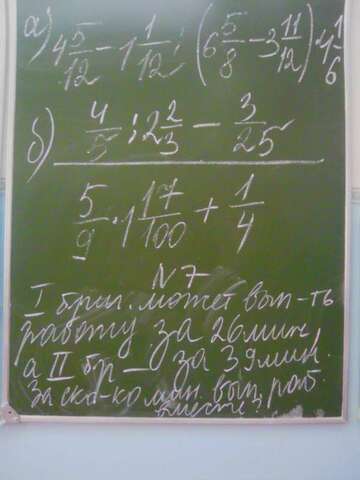 а) 4 5/12 - 1 1/12 : (6 5/8 - 3 11/12) · 4 1/6
б) 4/5 : 2 2/3 - 3/25
5/9 · 1 17/100 + 1/4
N 7
I бриг. может вып-ть
работу за 26 мин,
а II бр - за 39 мин.
За ско-ко мин. вып. раб.
вместе?